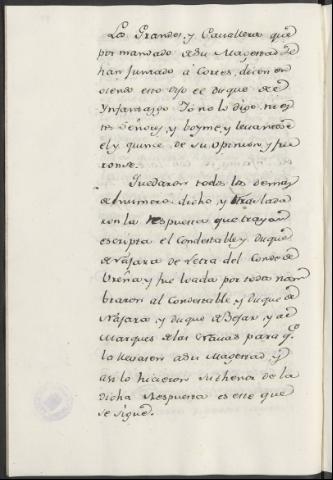 Los Grandes, y Cavalleros que
por mandado de Su Magestad se
han juntado à Cortes, dicen en
oiendo esto dijo el duque de el
Ynfantazgo Yo no lo digo, ni es
tos Señores, y boyme, y levantose
el y quince de su opinion, y fue
ronse.
Quedaron todos los demas
de numero dicho, y trasladada
con la respuesta que trayan
escripta el Condestable y duque
de Náxara de Letra del Conde de
Ureña y fue leada por todos nom
braron al Condestable, y duque de
Náxara, y duque de Bejar, y al
Marques de las Navas para q.e
lo llevasen a Su Magestad, y
asi lo hicieron su thenor de la
dicha Respuesta es este que
se sigue.